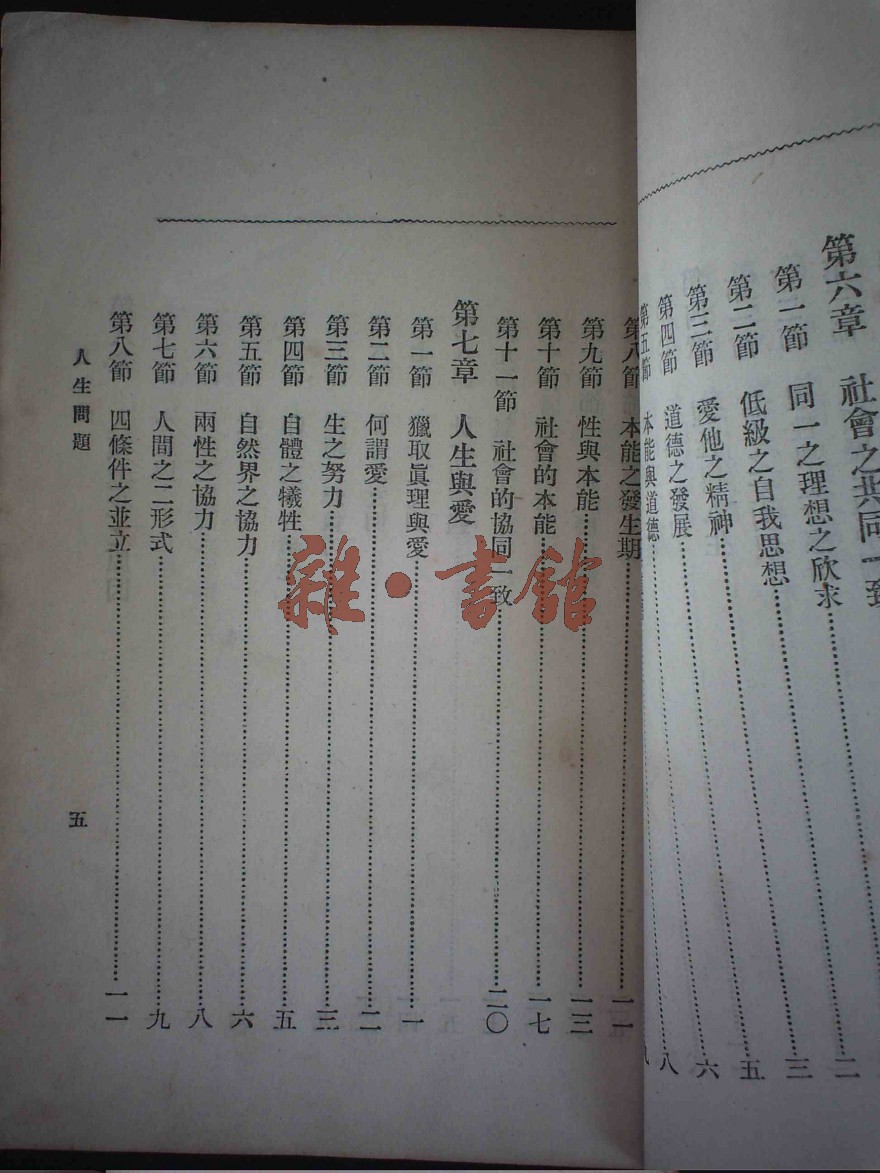 第六章　社會之共同一致
第一節　同一之理想之欣求……………二
第二節　低級之自我思想……………三
第三節　愛他之精神……………五
第四節　道德之發展……………六
第五節　本能與道德……………八
第八節　本能之發生期……………一一
第九節　性與本能……………一三
第十節　社會的本能……………一七
第十一節　社會的協同一致……………二〇
第七章　人生與愛
第一節　獵取眞理與愛……………一
第二節　何謂愛……………二
第三節　生之努力……………三
第四節　自體之犧牲……………五
第五節　自然界之協力……………六
第六節　兩性之協力……………八
第七節　人間之二形式……………九
第八節　四條件之並立……………一一
人生問題
五
雜·書館